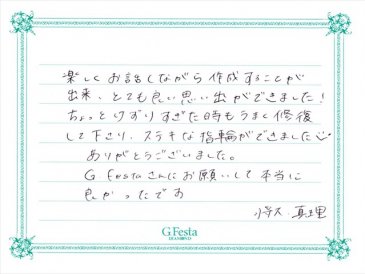 楽しくお話しながら作成することが
出来、とても良い思い出ができました!
ちょっとけずりすぎた時もうまく修復
して下さり、ステキな指輪ができました
ありがとうございました。
G Festaさんにお願いして本当に
良かったです
真理
G.Festa
DIAMOND